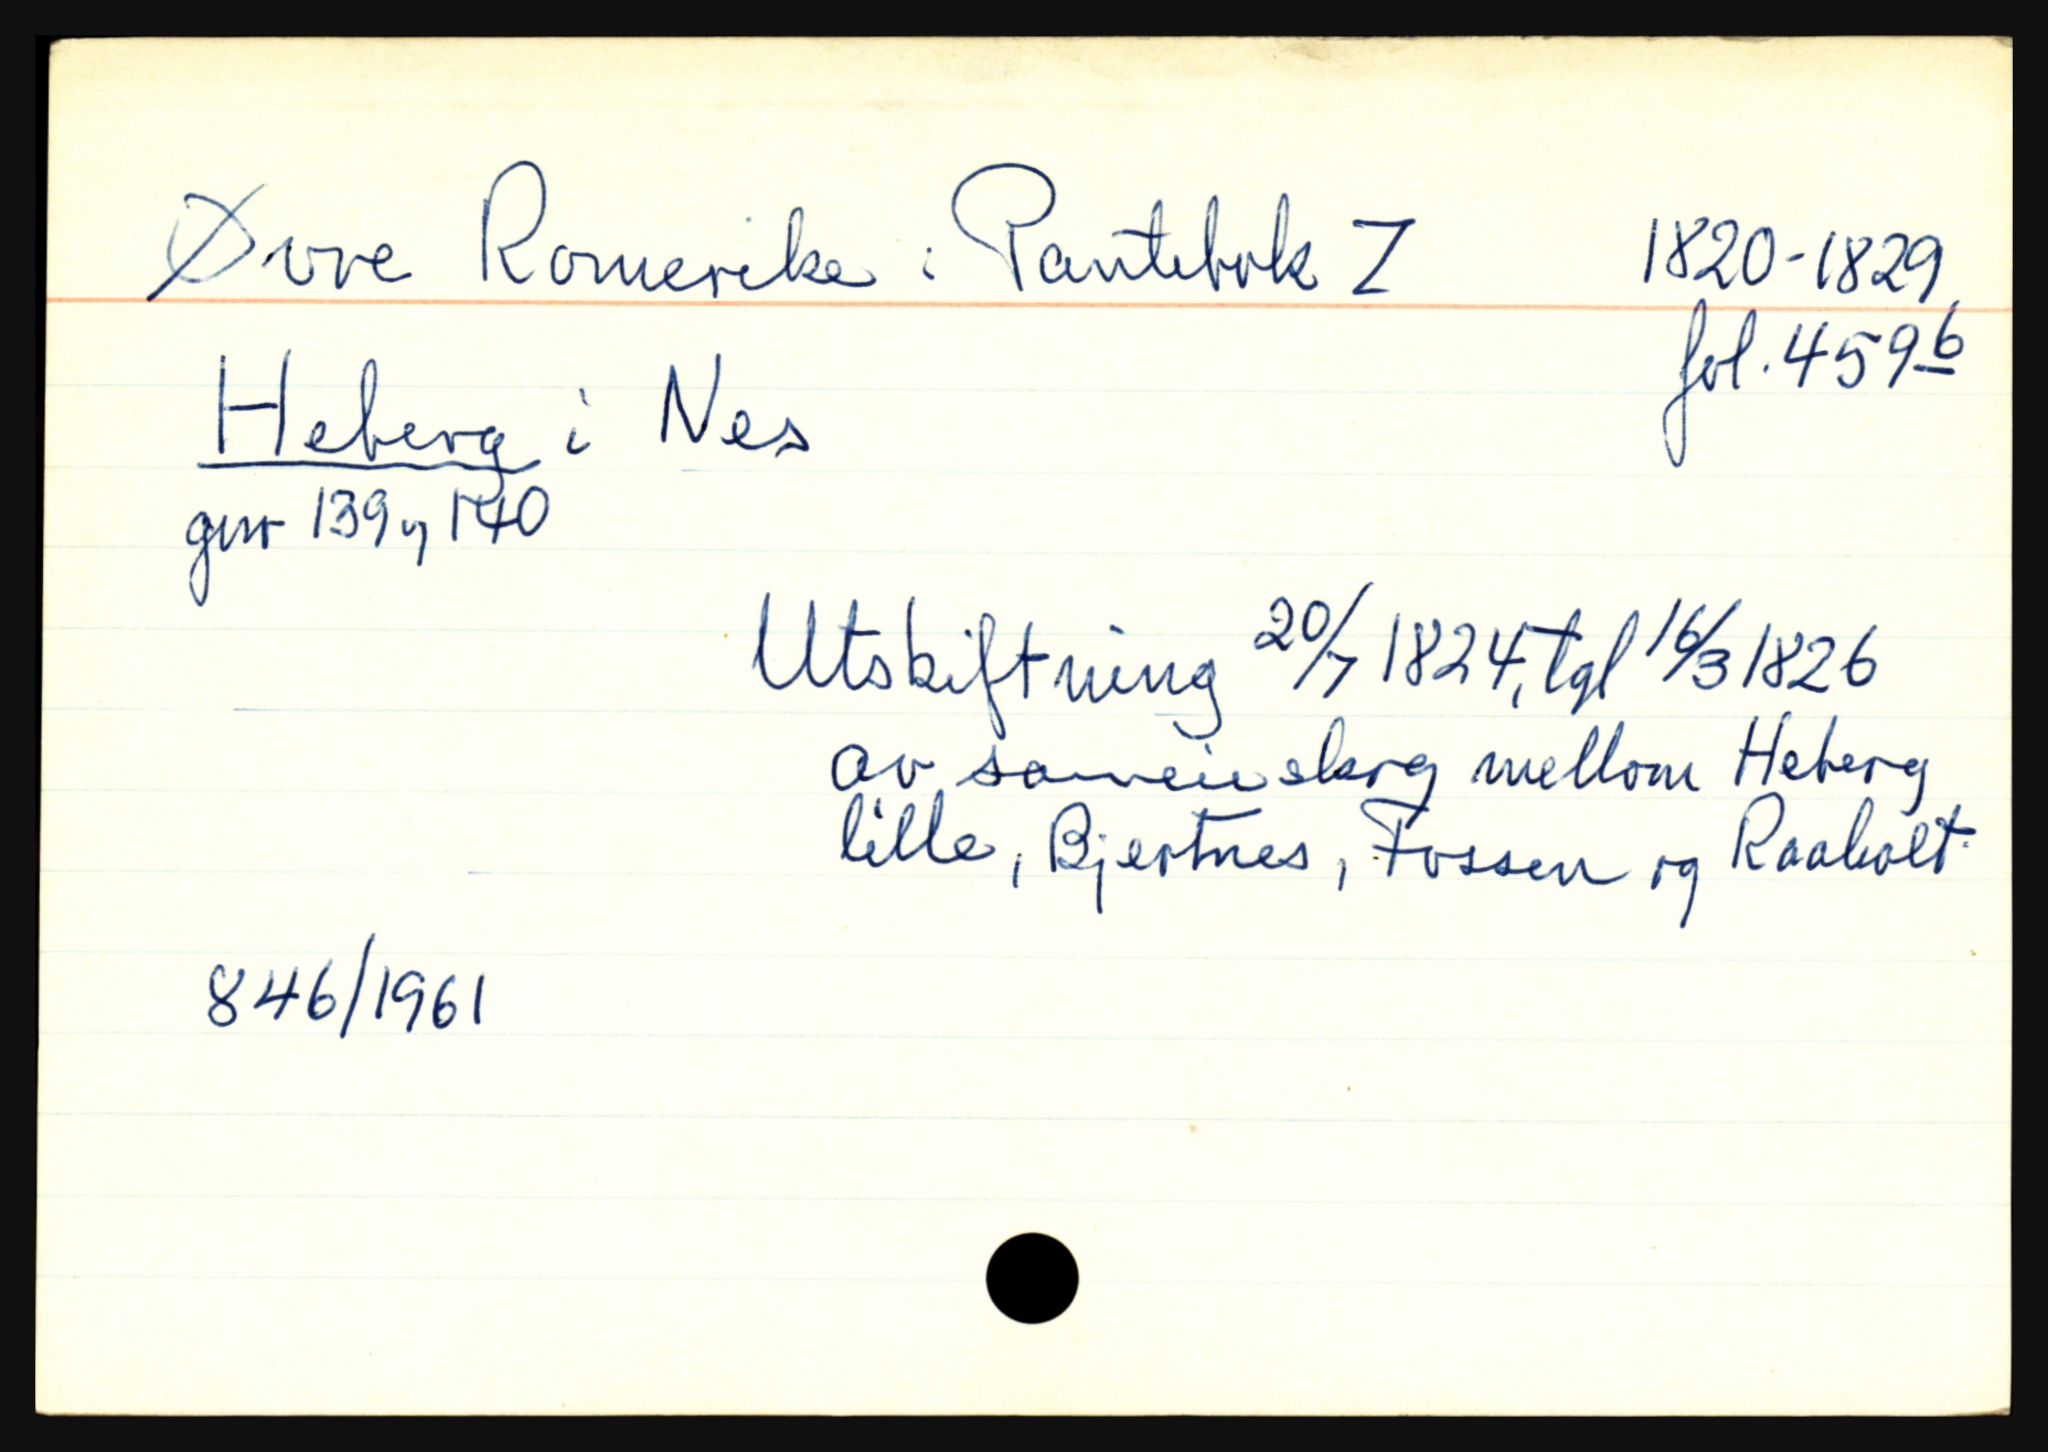 Øvre Romerike : Pantebok 7 1820-1829,
fol. 459b
Heberg i Nes
gnr 139 og 140
Utskiftning 20/7 1824, tgl 16/3 1826
av sameieskog mellom Heberg
lille, Bjertnes, Fossen og Raaholt.
846/1961